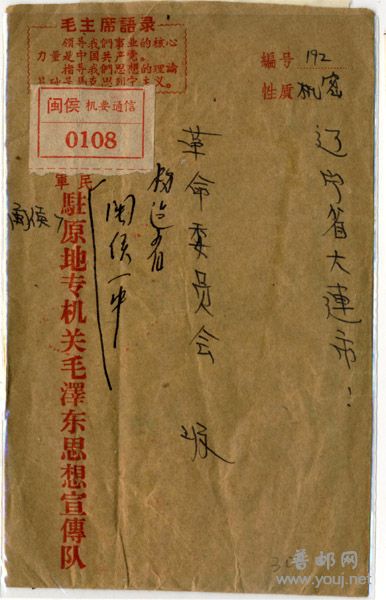 毛主席語录
领导我們事业的核心
力量是中国共产党。
指导我們思想的理論
編号 192
性质 机密
闽侯 机要通信
0108
辽宁省大連市:
革命委员会 收
闽侯一中
闽侯
軍民
駐原地专机关毛澤东思想宣傳队
普邮网
www.youj.net